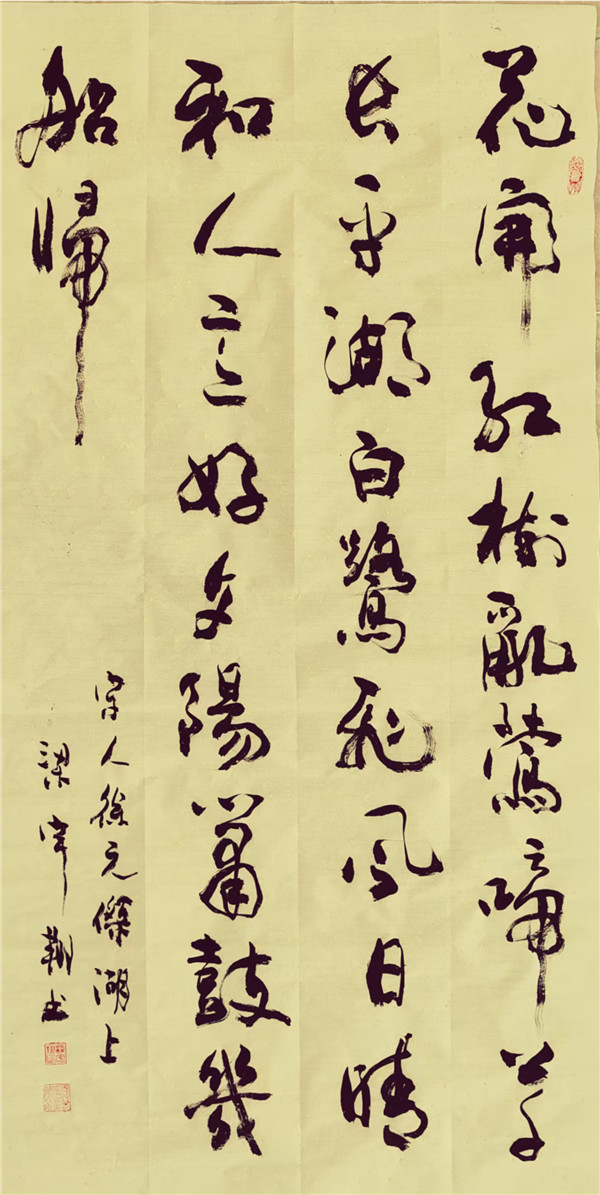 花開紅樹亂鶯啼草
長平湖白鷺飛風日晴
和人意好夕陽簫鼓幾
船歸
宋人徐元傑湖上
梁
书